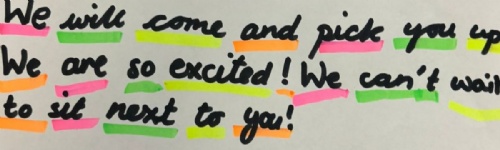 We will come and pick you up
We are so excited! We can't wait
to sit next to you!